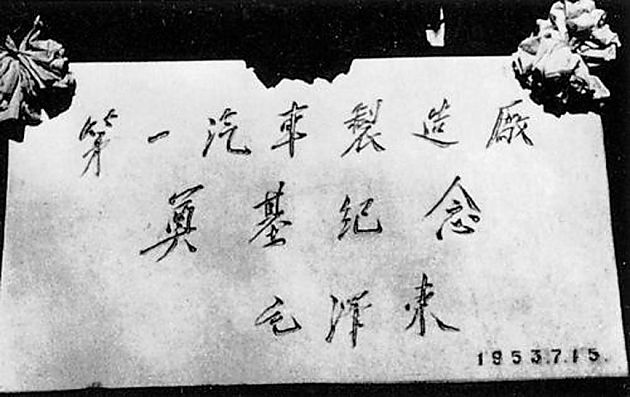 第一汽車製造廠
奠基紀念
毛澤東
1953.7.15.